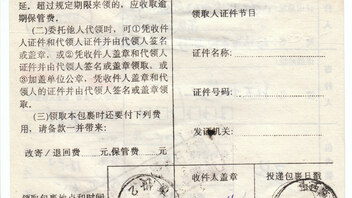 延，超过规定期限来领的，应收取逾
期保管费。
(二)委托他人代领时，可①凭收件
人证件和代领人证件并由代领人签名
或盖章，或②凭收件人盖章和代领人
证件并由代领人签名或盖章领取，或
③加盖单位公章，凭收件人盖章和代领
人的证件并由代领人签名或盖章领
取。
(三)领取本包裹时还要付下列费
用，请备款一并带来:
改寄/退回费 元,保管费 元。
领取人证件节目
证件名称:
证件号码:
发证机关:
收件人盖章
投递包裹日戳
领取包裹地点和时间